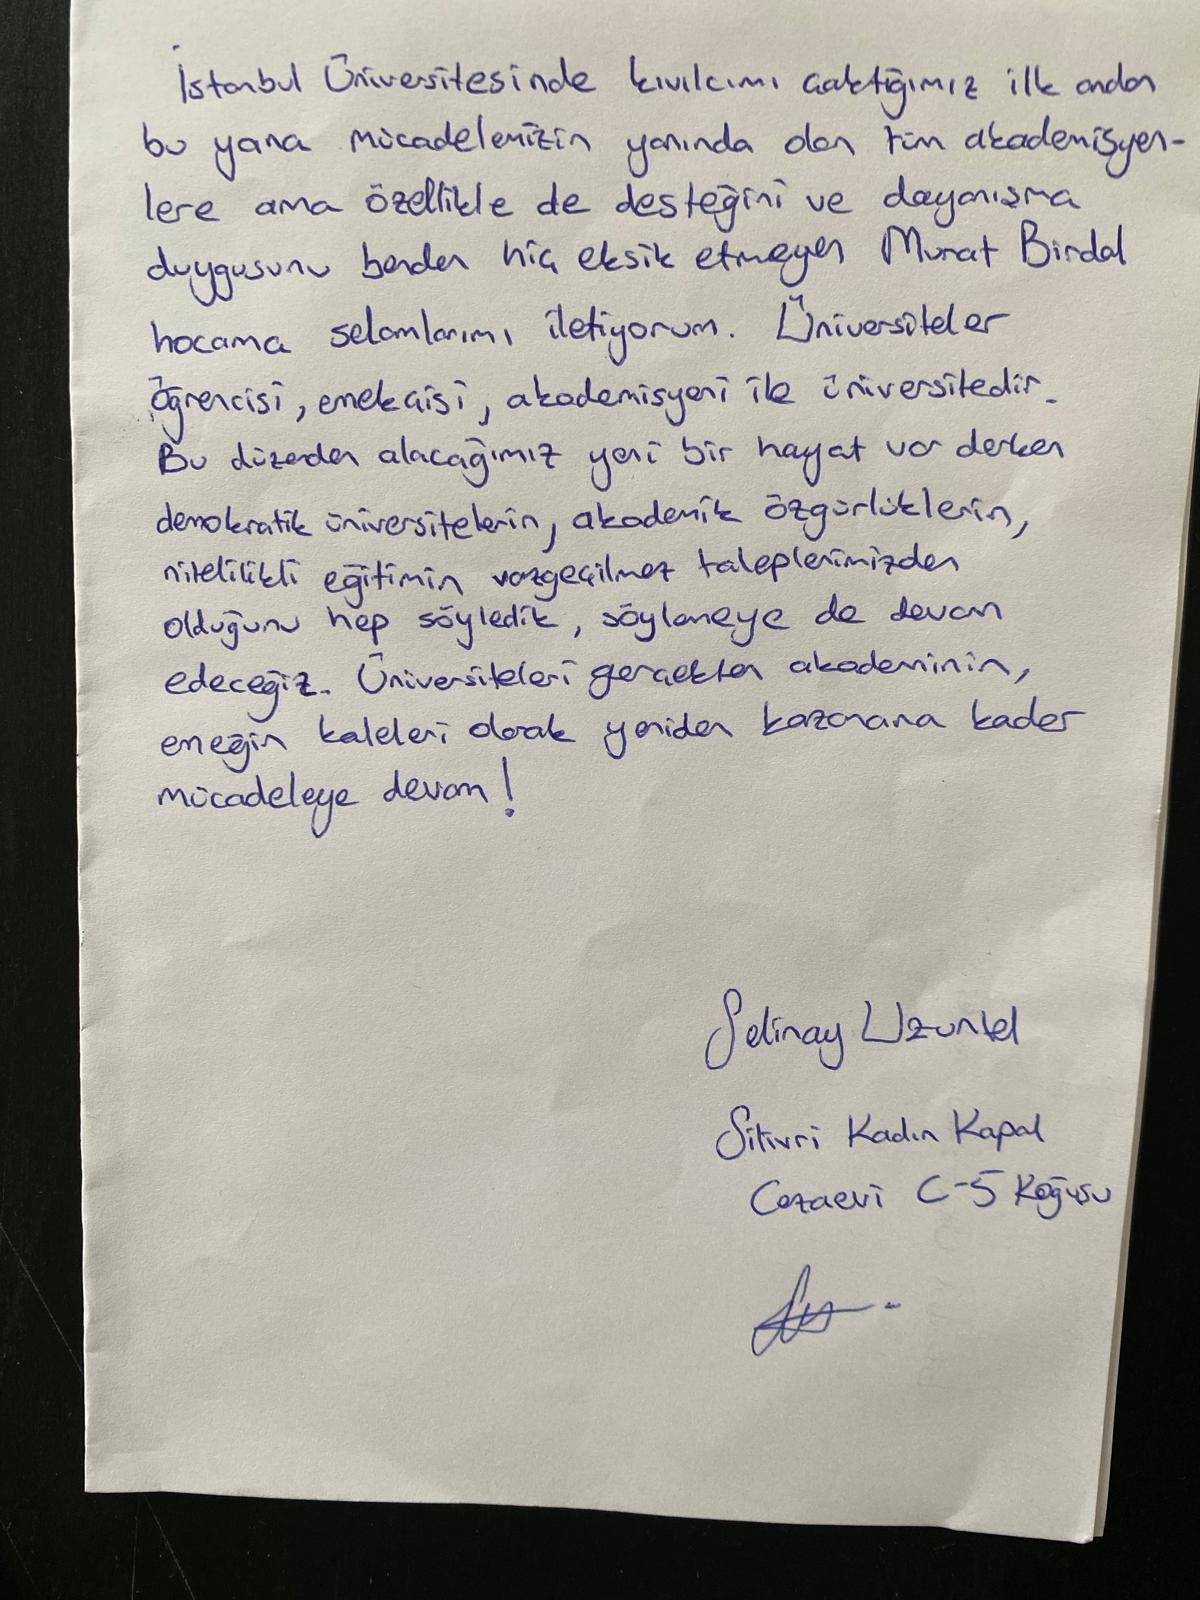 İstanbul Üniversitesinde kıvılcımı çaktığımız ilk andan
bu yana mücadelemizin yanında olan tüm akademisyen-
lere ama özellikle de desteğini ve dayanışma
duygusunu benden hiç eksik etmeyen Murat Birdal
hocama selamlarımı iletiyorum. Üniversiteler
öğrencisi, emekçisi, akademisyeni ile üniversitedir.
Bu düzenden alacağımız yeni bir hayat var derken
demokratik üniversitelerin, akademik özgürlüklerin,
nitelilikli eğitimin vazgeçilmez taleplerimizden
olduğunu hep söyledik, söylemeye de devam
edeceğiz. Üniversiteleri gerçekten akademinin,
emeğin kaleleri olarak yeniden kazanana kadar
mücadeleye devam!
Selinay Uzuntel
Silivri Kadın Kapalı
Cezaevi C-5 Koğuşu